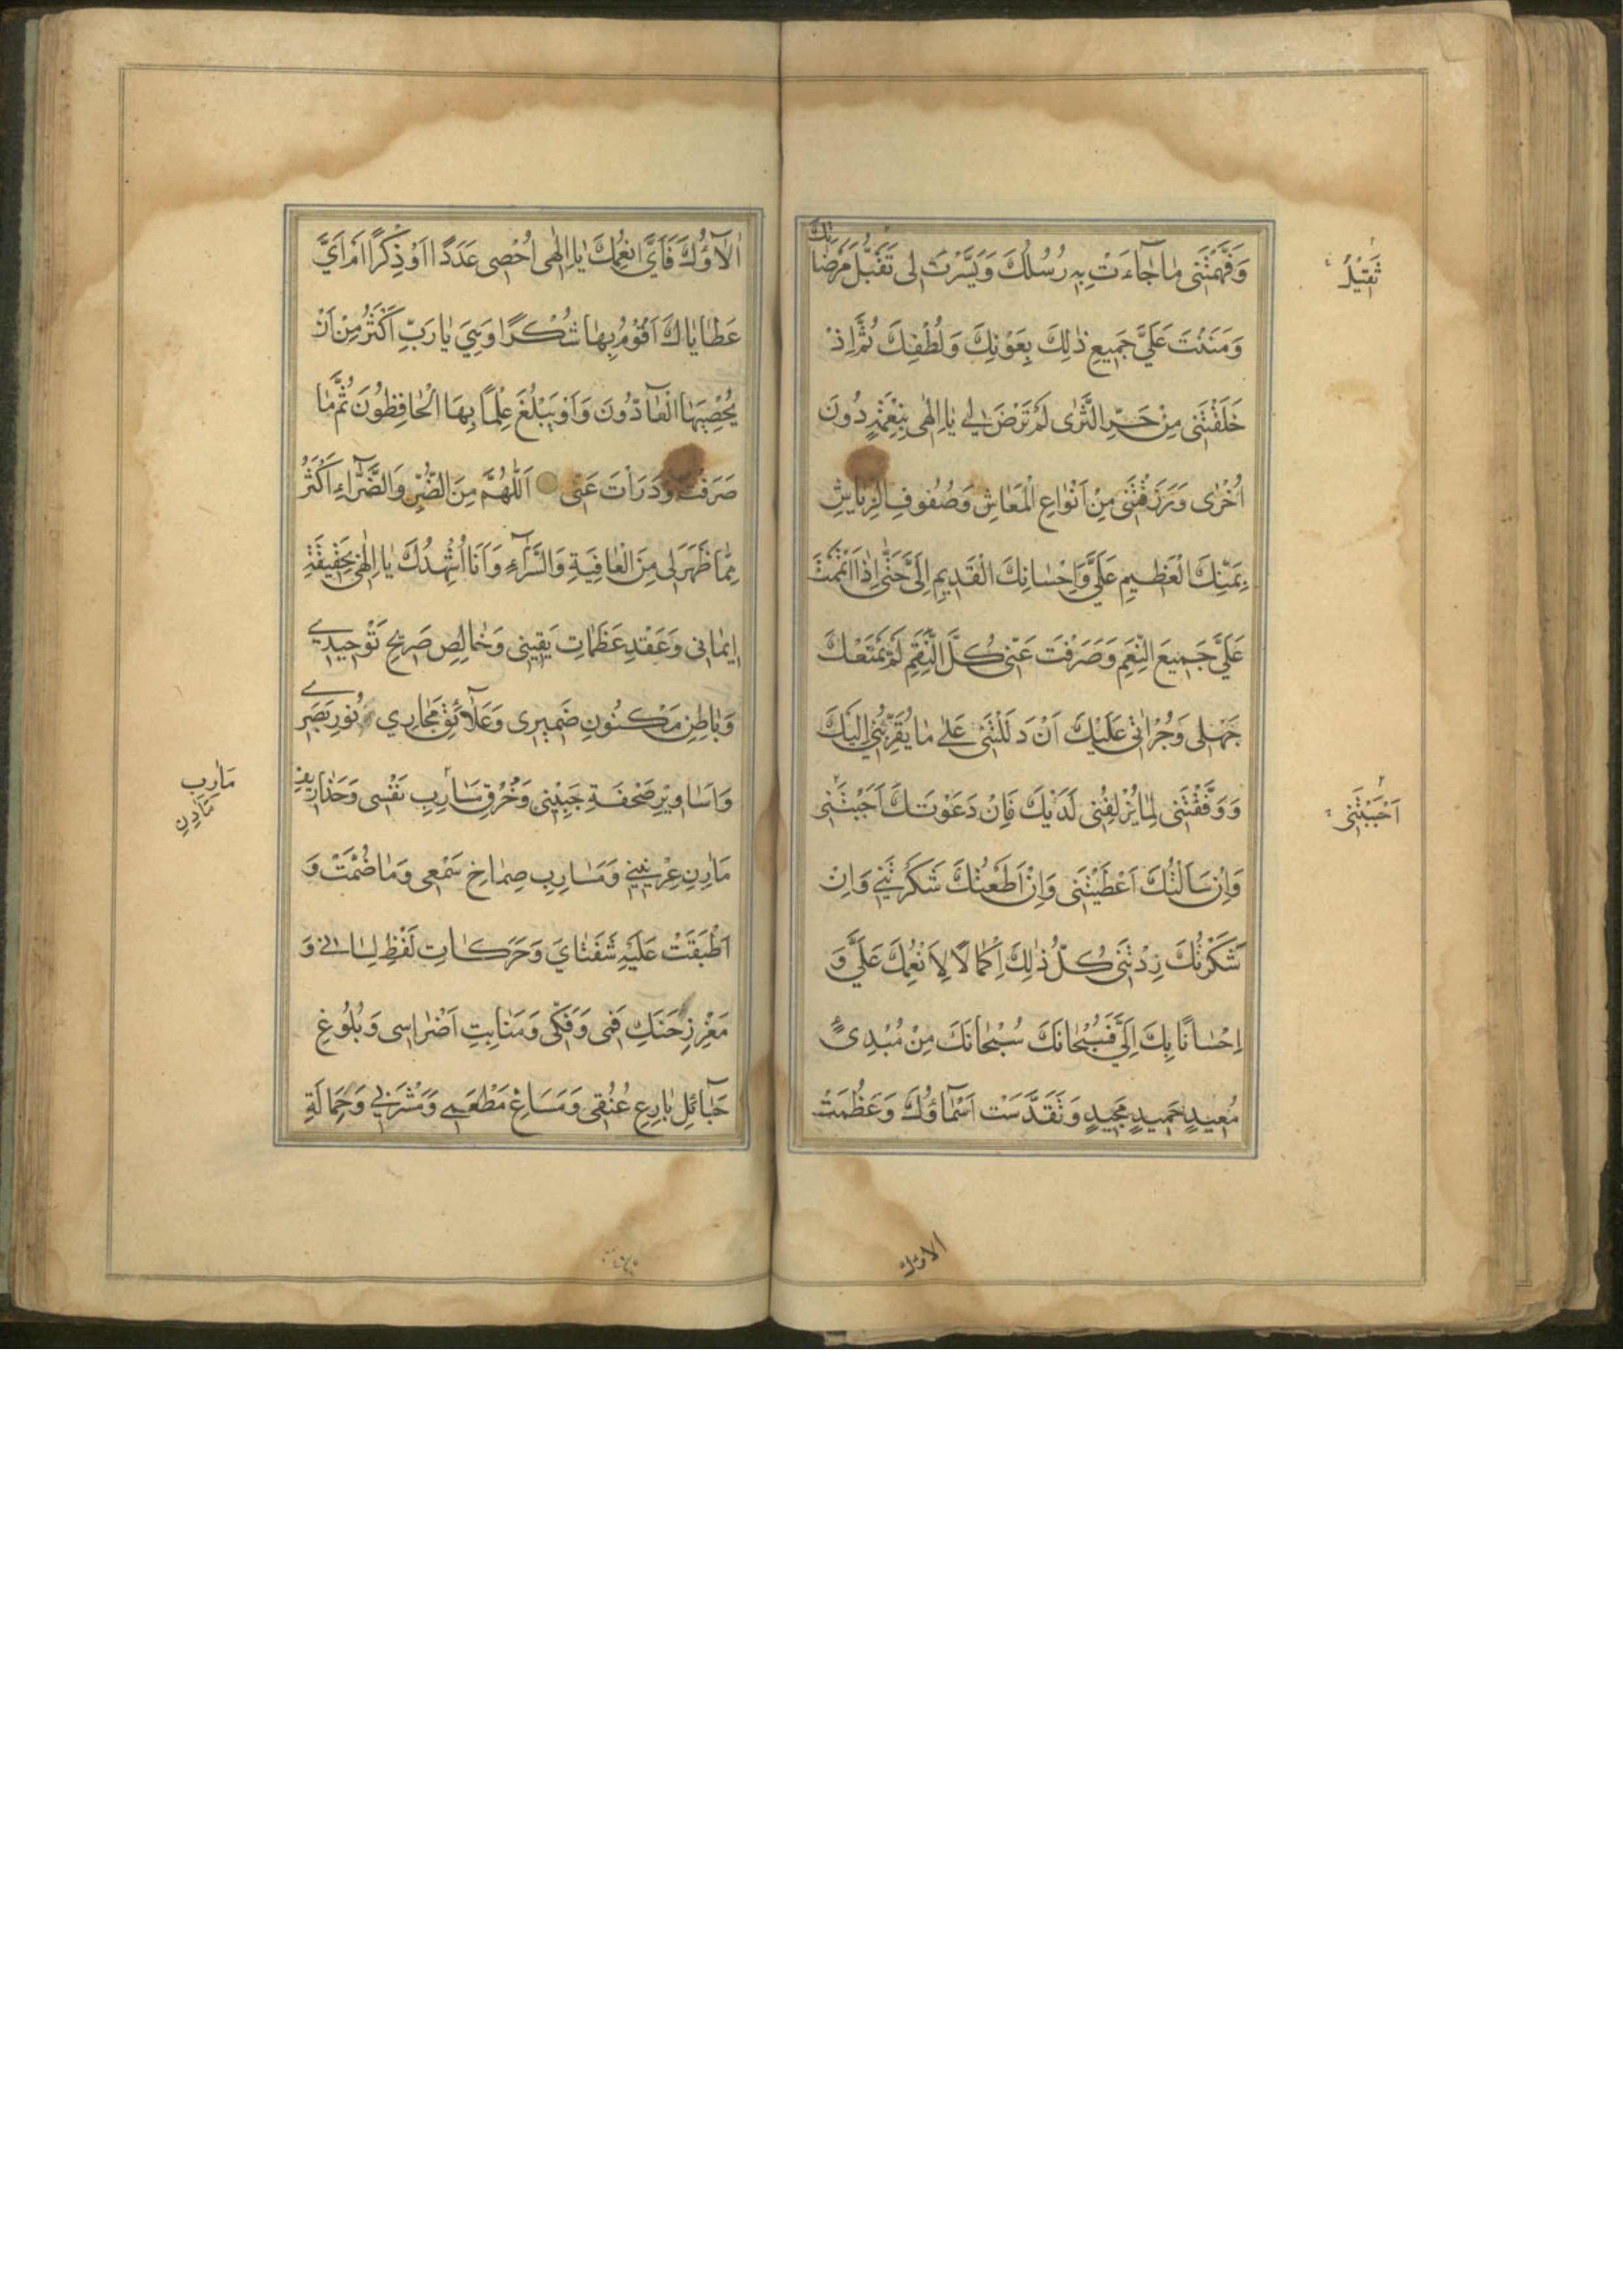 وَفَهَّمْتَنى مٰا جٰاۤءَتْ بِهِ رُسُلُكَ وَيَسَّرْتَ لى تَقَبُّلَ مَرْضٰاتِكَ
وَمَنَنْتَ عَلَيَّ جَمِيعِ ذٰلِكَ بِعَوْنِكَ وَلُطْفِكَ ثُمَّ اِذْ
خَلَقْتَنى مِنْ حَرِّ الثَّرٰى لَمْ تَرْضَ لي يٰا اِلٰهى بِنِعْمَةٍ دُونَ
اُخْرٰى وَرَزَقْتَنى مِنْ اَنْوٰاعِ الْمَعٰاشِ وَصُنُوفِ الرِّيٰاشِ
بِمَنِّكَ الْعَظيمِ عَلَيَّ وَاِحْسٰانِكَ الْقَديمِ اِلَيَّ حَتّٰى اِذٰا اَتْمَمْتَ
عَلَيَّ جَميعَ النِّعَمِ وَصَرَفْتَ عَنّى كُلَّ النِّقَمِ لَمْ يَمْنَعْكَ
جَهْلى وَجُرْاَتى عَلَيْكَ اَنْ دَلَلْتَنى عَلىٰ مٰا يُقَرِّبُنى اِلَيْكَ
وَوَفَّقْتَنى لِمٰا يُزْلِفُنى لَدَيْكَ فَاِنْ دَعَوْتُكَ اَجَبْتَنى
وَاِنْ سَاَلْتُكَ اَعْطَيْتَنى وَاِنْ اَطَعْتُكَ شَكَرْتَني وَاِنْ
شَكَرْتُكَ زِدْتَنى كُلُّ ذٰلِكَ اِكْمٰالًا لِاَنْعُمِكَ عَلَيَّ وَ
اِحْسٰانًا بِكَ اِلَيَّ فَسُبْحٰانَكَ سُبْحٰانَكَ مِنْ مُبْدِئٍ
مُعيدٍ حَميدٍ مَجيدٍ وَتَقَدَّسَتْ اَسْمٰاۤؤُكَ وَعَظُمَتْ
اَحْبَبْتَنى
اٰلاٰۤؤُكَ فَاَيَّ اَنْعُمِكَ يٰا اِلٰهى اُحْصى عَدَدًا اَوْ ذِكْرًا اَمْ اَيَّ
عَطٰايٰاكَ اَقُوْمُ بِهٰا شُكْرًا وَهِيَ يٰا رَبِّ اَكْثَرُ مِنْ اَنْ
يُحْصِيَهَا الْعٰاۤدّوُنَ وَاَوْ يَبْلُغَ عِلْمًا بِهَا الْحٰافِظُونَ ثُمَّ مٰا
صَرَفْتَ وَدَرَاْتَ عَنّى اَللّٰهُمَّ مِنَ الضُّرِّ وَالضَّرّٰۤاءِ اَكْثَرُ
مِمّٰا ظَهَرَ لى مِنَ الْعٰافِيَةِ وَالسَّرّٰۤاءِ وَاَنَا اُشْهِدُكَ يٰا اِلٰهى بِحَقيقَةِ
ايمٰانى وَعَقْدِ عَظَمٰاتِ يَقينى وَخٰالِصِ صَريحِ تَوْحيدي
وَبٰاطِنِ مَكْنُونِ ضَميرى وَعَلاٰۤئِقِ مَجٰارِي نُورِ بَصَرى
وَاَسٰاويرِ صَحْفَةِ جَبينى وَخُرْقِ مَسٰارِبِ نَفْسى وَحَذٰاريفِ
مٰارِنِ عِرْنيني وَمَسٰارِبِ صِمٰاخِ سَمْعى وَمٰا ضُمَّتْ وَ
اَطْبَقَتْ عَلَيْهِ شَفَتٰايَ وَحَرَكٰاتِ لَفْظِ لِسٰانى وَ
مَغْرِزِ حَنَكِ فَمى وَفَكّى وَمَنٰابِتِ اَضْرٰاسى وَبُلُوغِ
حَبٰاۤئِلِ بٰارِعِ عُنُقى وَمَسٰاغِ مَطْعَمي وَمَشْرَبي وَحِمٰالَةِ
مٰارِبِ